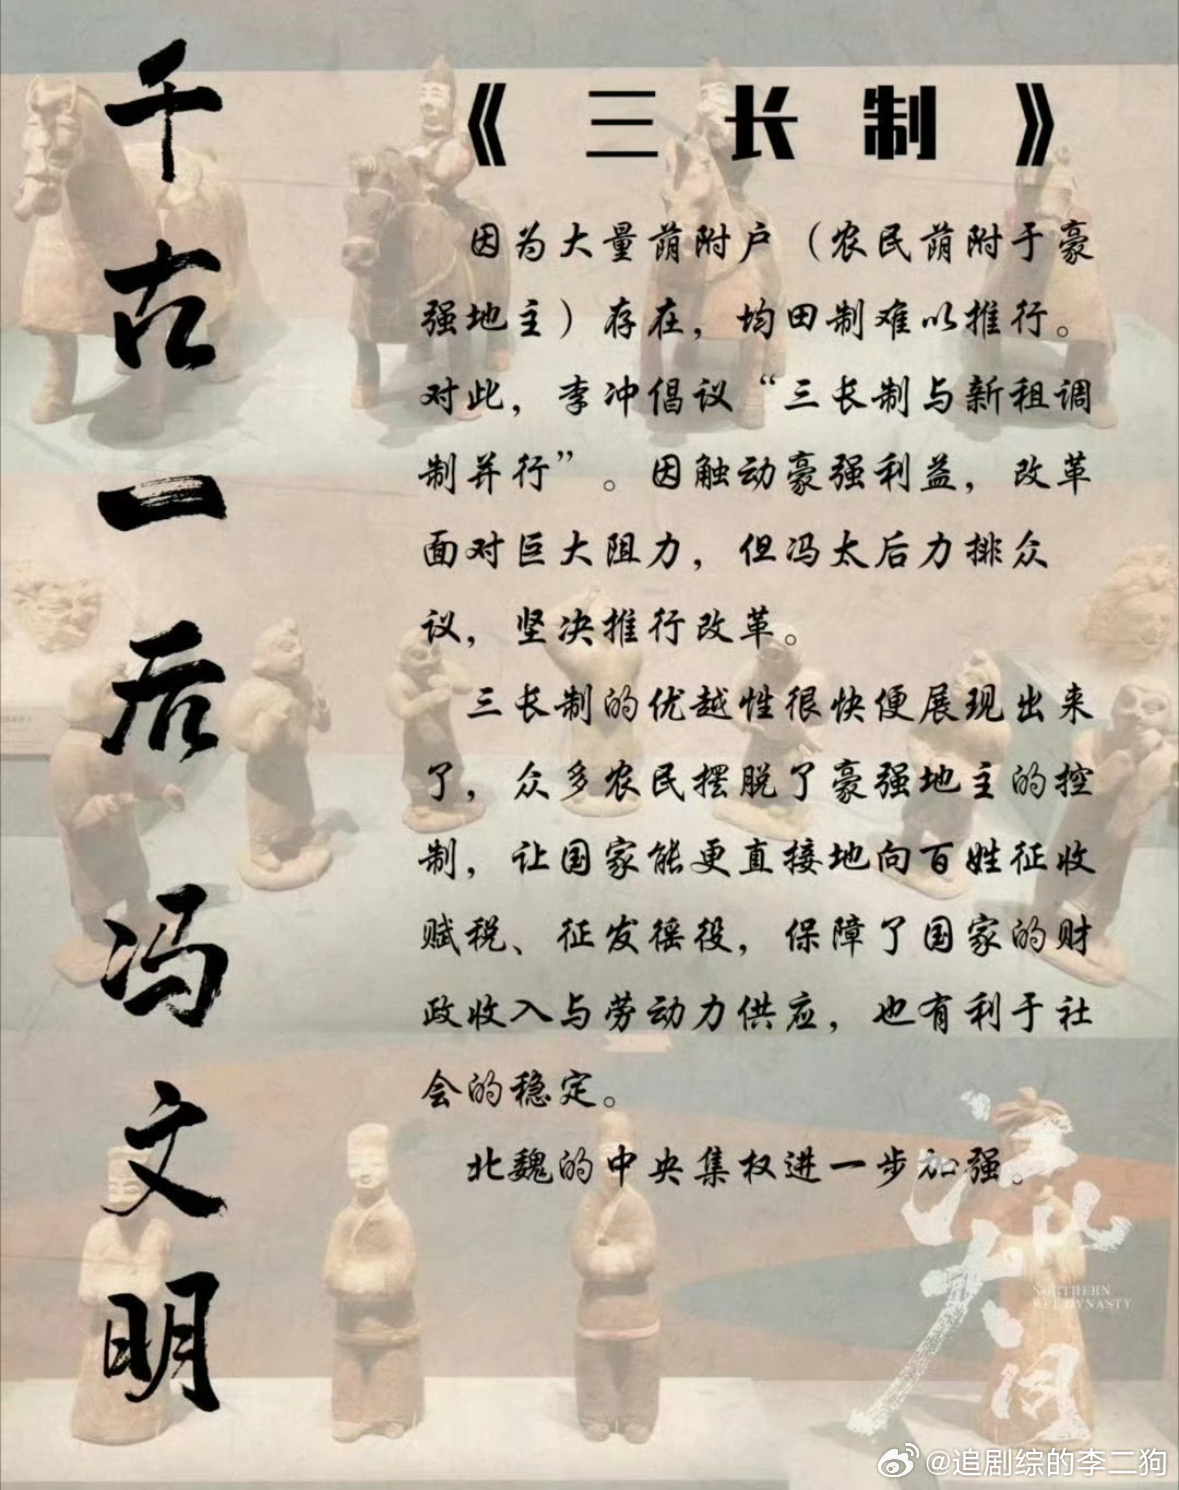 千古一后冯文明
《三长制》
因为大量荫附户（农民荫附于豪
强地主）存在，均田制难以推行。
对此，李冲倡议“三长制与新租调
制并行”。因触动豪强利益，改革
面对巨大阻力，但冯太后力排众
议，坚决推行改革。
三长制的优越性很快便展现出来
了，众多农民摆脱了豪强地主的控
制，让国家能更直接地向百姓征收
赋税、征发徭役，保障了国家的财
政收入与劳动力供应，也有利于社
会的稳定。
北魏的中央集权进一步加强。
NORTHERN
WEI DYNASTY
@追剧综的李二狗